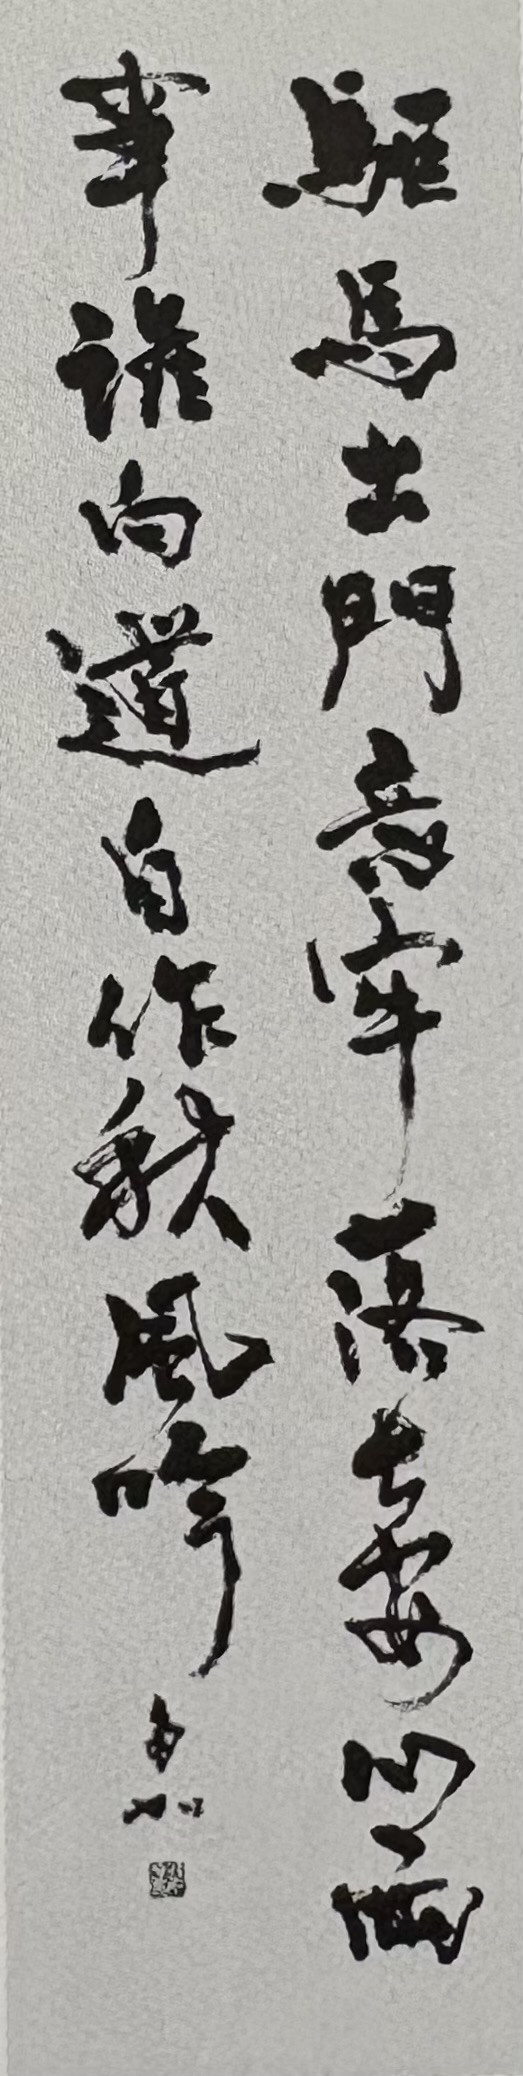 驅馬出門意牢落長安心兩
事誰向道自作秋風吟